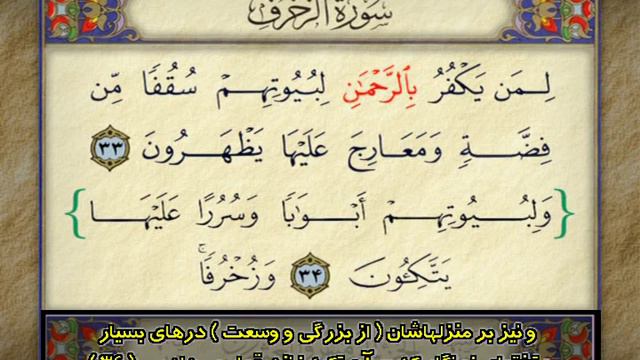 سُورَةُ الزُّخْرُفِ
لِـمَن يَكْفُرُ بِٱلرَّحْمَٰنِ لِبُيُوتِهِمْ سُقُفًا مِّن
فِضَّةٍ وَمَعَارِجَ عَلَيْهَا يَظْهَرُونَ ٣٣
{وَلِبُيُوتِهِمْ أَبْوَٰبًا وَسُرُرًا عَلَيْهَا}
يَتَّكِـُٔونَ ٣٤ وَزُخْرُفًا ۚ
و نیز بر منزلهاشان ( از بزرگی و وسعت ) درهای بسیار